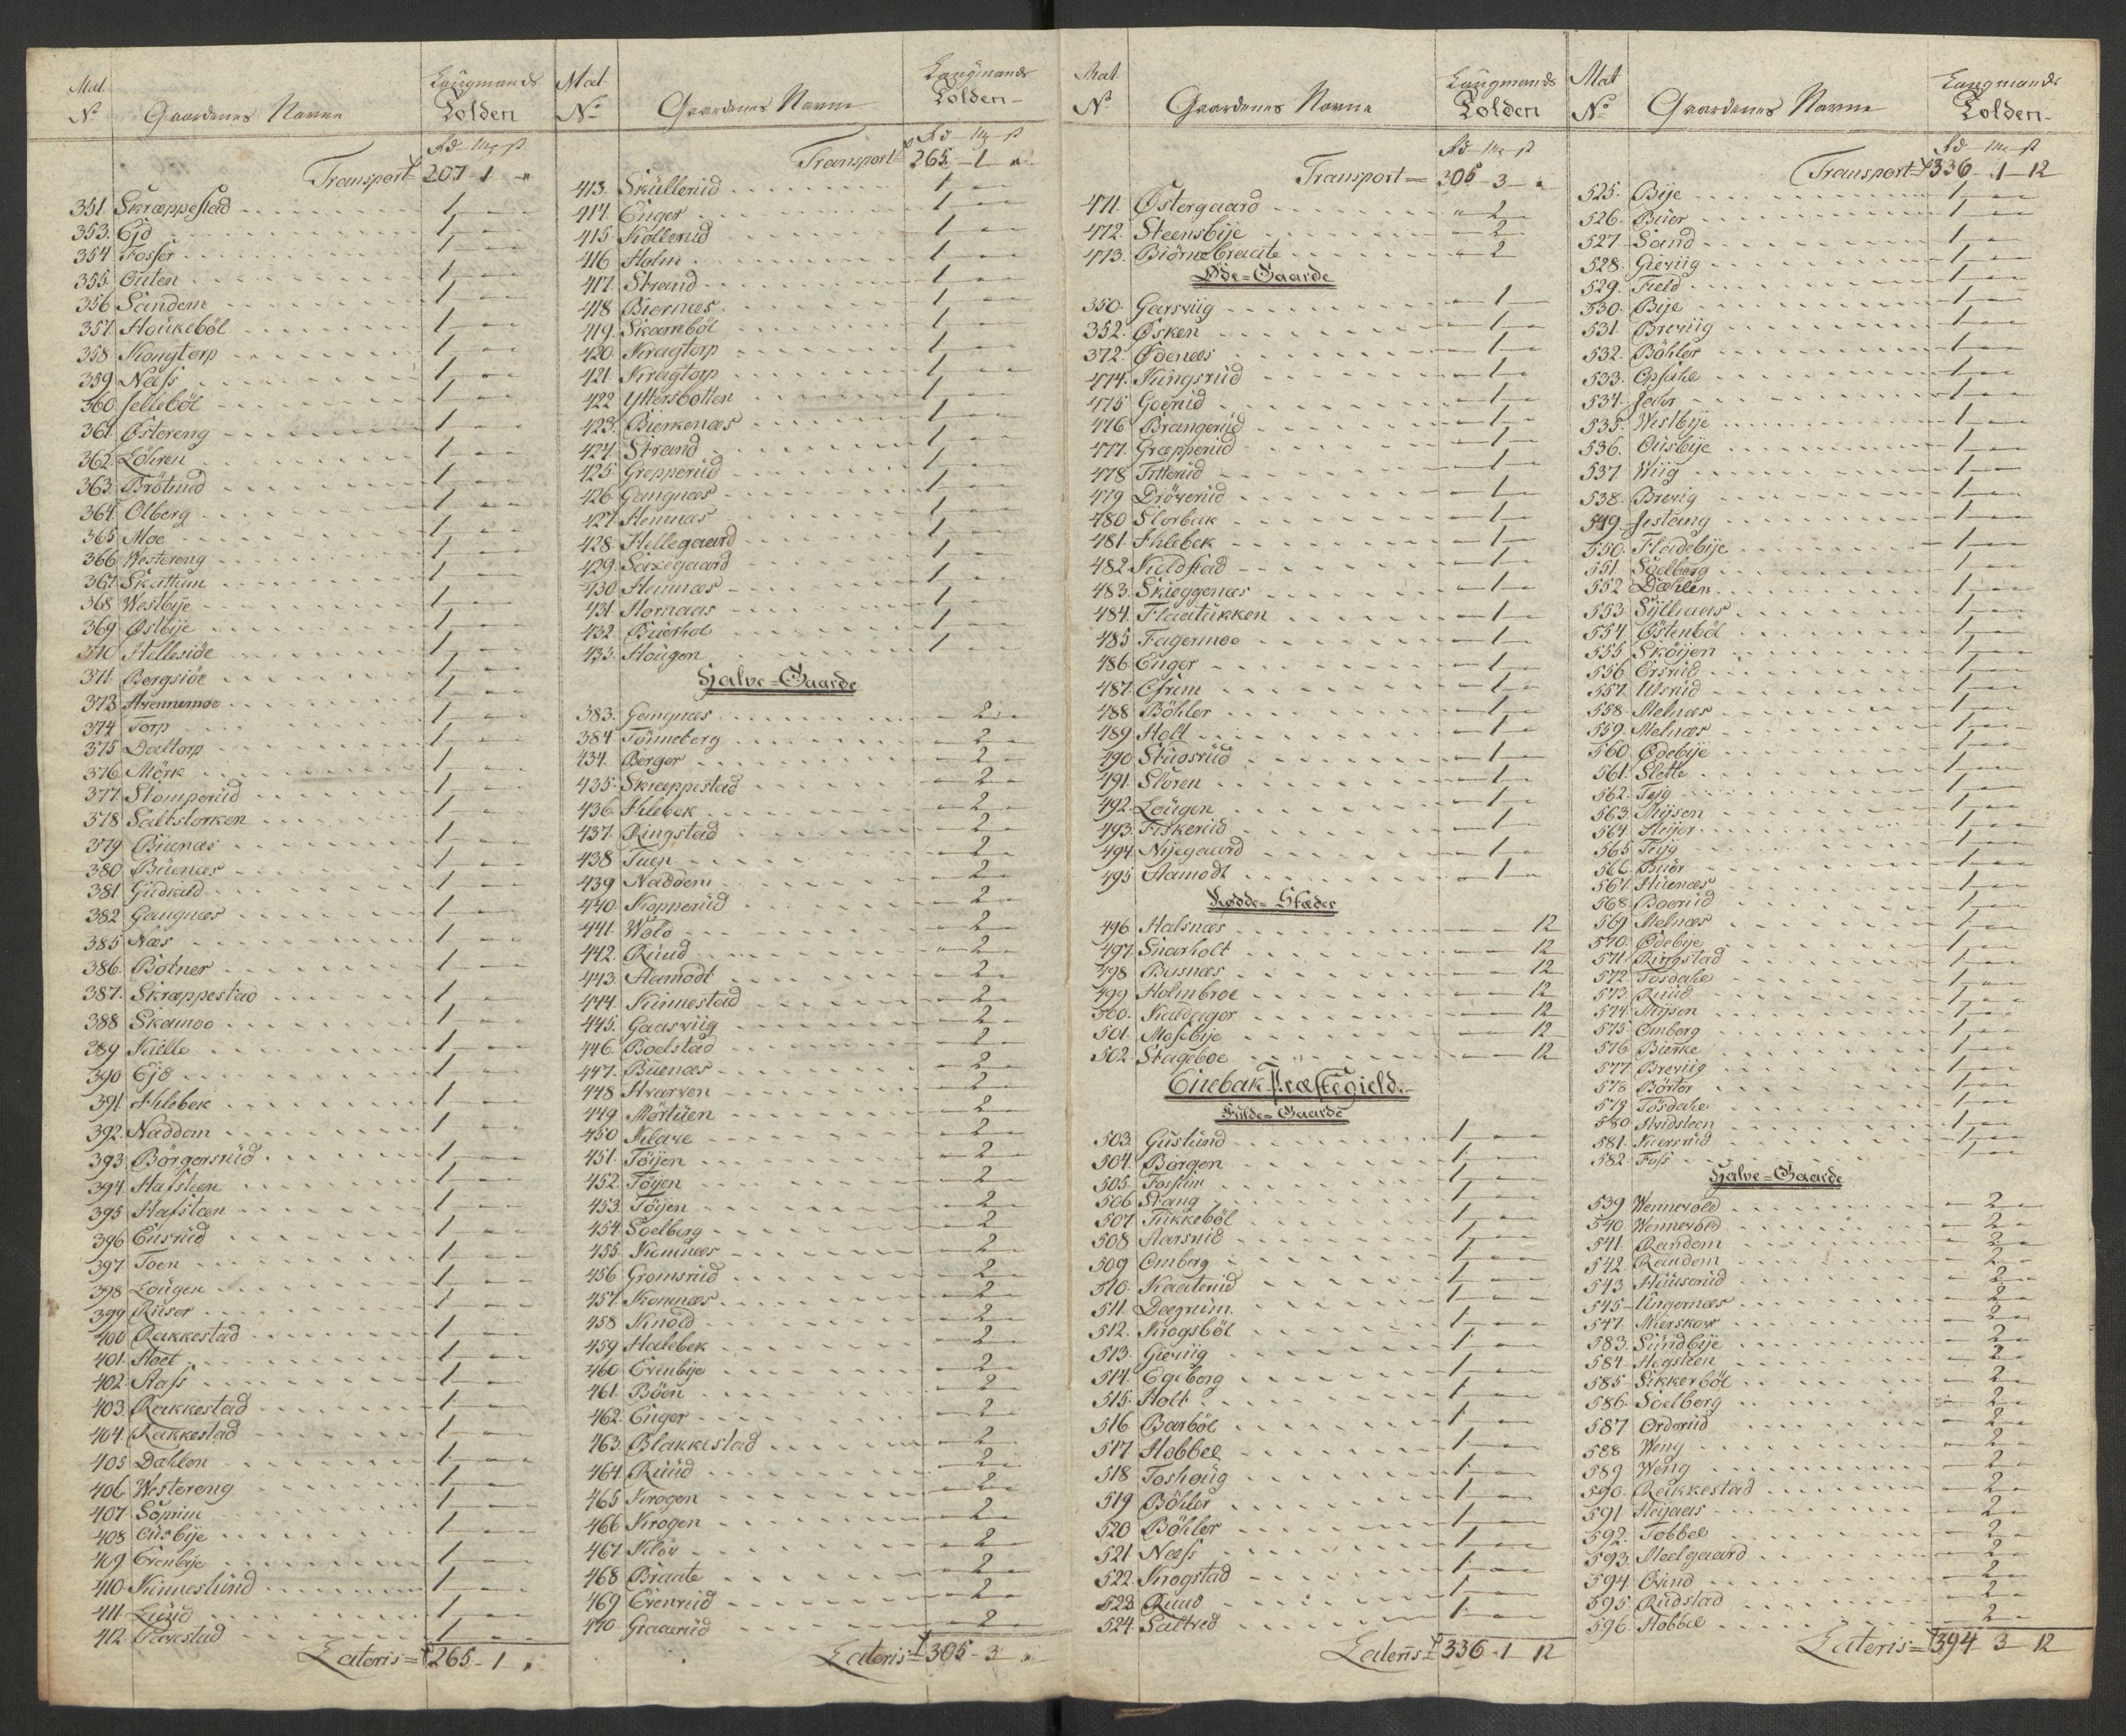 Mat
No Gaardenes Navne Laugmands
Tolden
Rd – Mg – ß
Transport 207 – 1 – "
351. Skræppestad 1
353. Ejd 1
354 Fosser 1
355 Outen 1
356 Sandem 1
357. Houkeböl 1
358 Kongtorp 1
359 Næss 1
360 Jelleböl 1
361 Østereng 1
362. Löhren 1
363. Brötned 1
364. Olberg 1
365 Moe 1
366 Westereng 1
367. Skattum 1
368 Westbÿe 1
369 Østbÿe 1
370 Hellesiöe 1
371 Bergsiöe 1
373 1
374 Torp 1
375 Daltorp 1
376 Mörk 1
377 Stomperud 1
378 Saltstorken 1
379 Buenæs 1
380 Buenæs 1
381 1
382 Gangnæs 1
385 Næs 1
386. Botner 1
387. Skræppestad 1
388 Skamoe 1
389 Kulle 1
390 Ejd 1
391 Ihlebek 1
392. Naddem 1
393 Börgersrud 1
394 Hafsteen 1
395 Hafsteen 1
396 Eusrud 1
397. Toen 1
398 Lougen 1
399 Ruser 1
400 Rakkestad 1
401. Hoel 1
402 Aass 1
403 Rakkestad 1
404. Rakkestad 1
405 Dahlen 1
406. Westereng 1
407. Soprim 1
408 Ousbÿe 1
409 Evenbÿe 1
410 Kinneslund 1
411 Lund 1
412. 1
Lateris 265 – 1 "
Mat
No Gaardenes Navne Laugmands
Tolden
Rd – Mg – ß
Transport 265 – 1 "
413. Skullerud 1
414. Enger 1
415. Kollerud 1
416 Holm 1
417. Strand 1
418 Biernæs 1
419. Skamböl 1
420. Kragtorp 1
421. Kragtorp 1
422 Yttersbotten 1
423. Bierkenæs 1
424. Strand 1
425. Grepperud 1
426. Gangnæs 1
427. Hemnæs 1
428. Hellegaard 1
429. Saxegaard 1
430 Hemnæs 1
431. Hornaas 1
432. Buerhol 1
433. Hougen 1
Halve=Gaarde
383. Gangnæs 2
384 Tönneberg 2
434. Berger 2
435. Skræppestad 2
436. Ihlebek 2
437. Ringstad 2
438 Tuen 2
439 Naddem 2
440 Kopperud 2
441. Wolo 2
442. Ruud 2
443. Aamodt 2
444. Kinnestad 2
445. Gaasviig 2
446. Boelstad 2
447. Buenæs 2
448 Hvarven 2
449 Mörtuen 2
450 Klare 2
451. Töÿen 2
452. Töÿen 2
453 Töÿen 2
454. Soelberg 2
455. Komnæs 2
456 Gromsrud 2
457. Komnæs 2
458 Knold 2
459 Halebek 2
460 Evenbÿe 2
461. Böen 2
462. Enger 2
463. Blakkestad 2
464. Ruud 2
465 Krogen 2
466 Krogen 2
467 Klöv 2
468 Braate 2
469 Evenrud 2
470. Graarud 2
Lateris 305 – 3 "
Mat.
No Gaardenes Navne Laugmands
Tolden
Rd – Mg – ß
Transport 305 – 3 "
471. Østergaard 2
472. Steensbÿe 2
473. Biörnebraate 2
Øde=Gaarde
350. Garsviig 1
352. Øsken 1
372. Ødenæs 1
474. Kungsrud 1
475 Goerud 1
476 Brangerud 1
477. Grepperud 1
478 Titterud 1
479 Dröverud 1
480 Storbek 1
481. Ihlebek 1
482 Kieldstad 1
483. Skieggenæs 1
484. Flaatukken 1
485 Fagermoe 1
486 Enger 1
487. Ofrim 1
488 Böhler 1
489 Holt 1
490 Studsrud 1
491. Storen 1
492. Lougen 1
493. Fiskerud 1
494 Nÿegaard 1
495 Aamodt 1
Rødde=Stæder
496. Halsnæs 12
497. Snarholt 12
498 Busnæs 12
499. Holmbroe 12
500. Kaldager 12
501. Mosebÿe 12
502. Stageboe 12
Enebak Præstegield.
Fulde=Gaarde
503. Guslund 1
504. Börgen 1
505. Forfum 1
506 Stang 1
507. Tukkeböl 1
508 Aarsrud 1
509 Omberg 1
510. Kaaterud 1
511. Dægrum 1
512. Krogsböl 1
513. Gieviig 1
514. Egeberg 1
515. Holt 1
516 Barböl 1
517 Hobbel 1
518 Toshoug 1
519 Böhler 1
520 Böhler 1
521 Næss 1
522. Krogstad 1
523 Ruud 1
524. Saltved 1
Lateris 336 – 1 – 12
Mat
No Gaardenes Navne Laugmands
Tolden
Rd – Mg – ß
Transport 336 – 1 – 12
525. Bÿe 1
526. Buer 1
527. Sand 1
528. Gieviig 1
529. Field 1
530. Bÿe 1
531. Breviig 1
532. Böhler 1
533. Opsahl 1
534. Jahr 1
535. Westbÿe 1
536. Ousbÿe 1
537. Wiig 1
538. Brevig 1
549 Jestang 1
550. Fladebÿe 1
551 Soelberg 1
552 Dæhlen 1
553 Sÿllaas 1
554. Östenböl 1
555 Sköÿen 1
556. Ersrud 1
557. Ulsrud 1
558. Melnæs 1
559. Melnæs 1
560. Ødebÿe 1
561. Slette 1
562. Tejg 1
563. Mÿsen 1
564. Heÿer 1
565 Tejg 1
566. Buer 1
567. Huenæs 1
568. Boerud 1
569 Melnæs 1
570. Ødebÿe 1
571. Ringstad 1
572. Tosdahl 1
573. Ruud 1
574. Mÿsen 1
575 Omberg 1
576. Bierke 1
577. Breviig 1
578. Börter 1
579. Tosdahl 1
580. Hvidsteen 1
581. 1
582. Foss 1
Halve=Gaarde
539 Wennevold 2
540 Wennevold 2
541. Randem 2
542. Randem 2
543 Huuserud 2
545 Ungernæs 2
547 Nierskov 2
583. Sundbÿe 2
584. Hegsteen 2
585. Sikkerböl 2
586. Soelberg 2
587 Orderud 2
588 Weng 2
589 Weng 2
590. Rakkestad 2
591 Heÿaas 2
592. Tobbel 2
593. Meelgaard 2
594. Qvind 2
595. Rudstad 2
596. Hobbel 2
Lateris 394 – 3 – 12